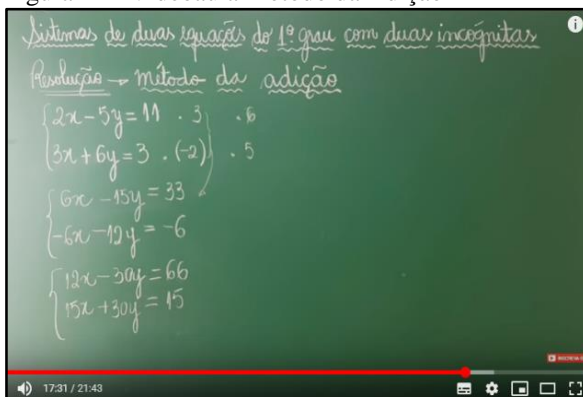 Sistemas de duas equações do 1º grau com duas incógnitas
Resolução → método da adição
2x - 5y = 11 . 3 . 6
3x + 6y = 3 . (-2) . 5
6x - 15y = 33
-6x - 12y = -6
12x - 30y = 66
15x + 30y = 15
17:31 / 21:43